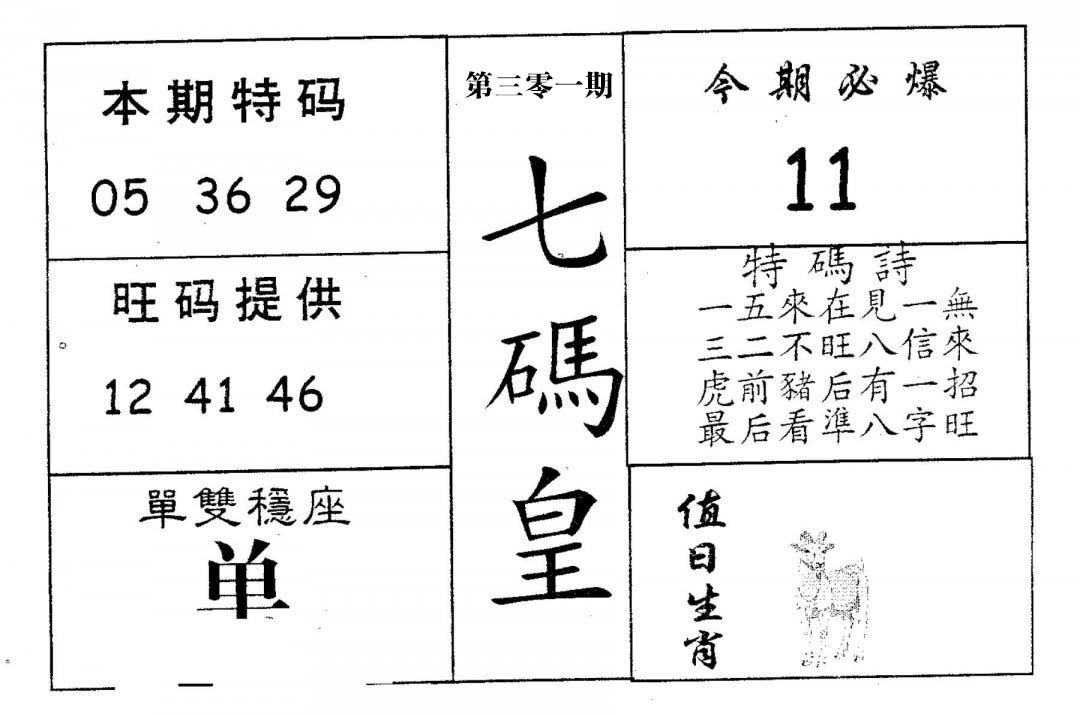 本期特码
05 36 29
旺码提供
12 41 46
單雙穩座
单
第三零一期
七碼皇
今期必爆
11
特碼詩
一五來在見一無
三二不旺八信來
虎前豬后有一招
最后看準八字旺
值日生肖